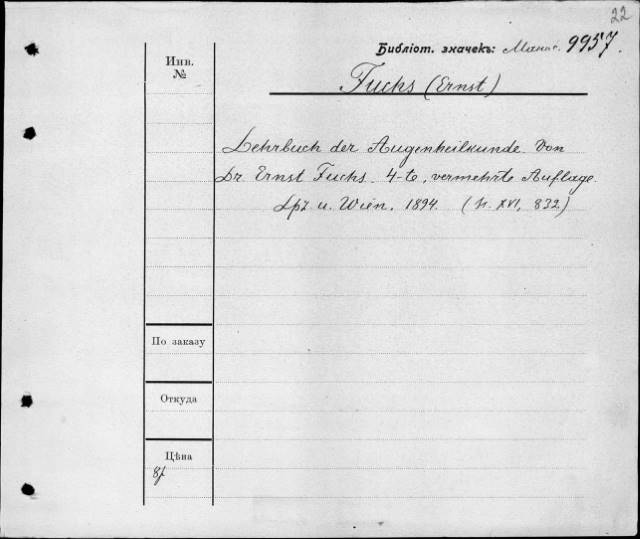 22
Библіот. значекъ: 9957.
Инв.
№
Fuchs (Ernst)
Lehrbuch der Augenheilkunde. Von
Dr. Ernst Fuchs. 4-te, vermehrte Auflage.
Lpz u. Wien. 1894. (XVI, 832)
По заказу
Откуда
Цѣна